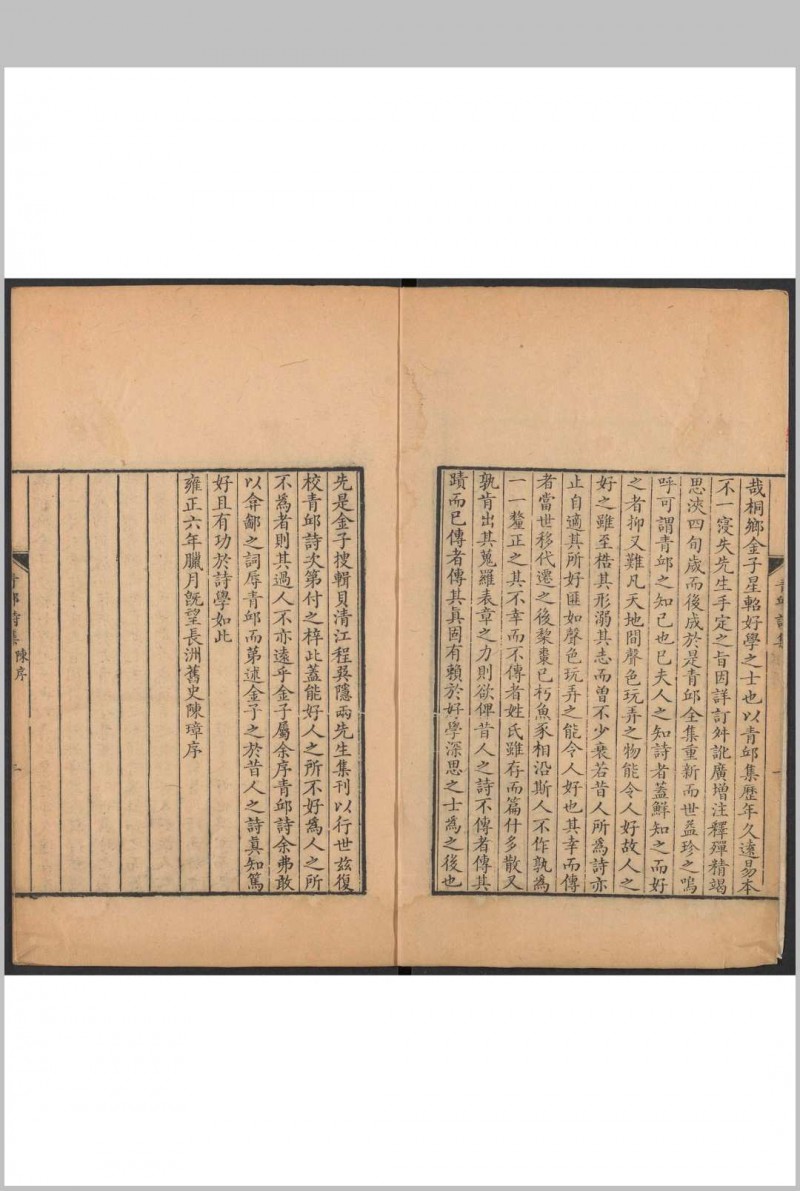 哉桐鄉金子星軺好學之士也以青邱集歷年久遠易本
不一寖失先生手定之旨因詳訂舛訛廣增注釋殫精竭
思浹四旬歲而後成於是青邱全集重新而世益珍之嗚
呼可謂青邱之知己也已夫人之知詩者蓋鮮知之而好
之者抑又難凡天地間聲色玩弄之物能令人好故人之
好之雖至梏其形溺其志而曽不少衰若昔人所為詩亦
止自適其所好匪如聲色玩弄之能令人好也其幸而傳
者當世移代遷之後棃棗已朽魚豕相沿斯人不作孰為
一一釐正之其不幸而不傳者姓氏雖存而篇什多散又
孰肯出其蒐羅表章之力則欲俾昔人之詩不傳者傳其
蹟而已傳者傳其真固有賴於好學深思之士為之後也
先是金子搜輯貝清江程巽隱兩先生集刊以行世玆復
校青邱詩次第付之梓此蓋能好人之所不好為人之所
不為者則其過人不亦遠乎金子屬余序青邱詩余弗敢
以弇鄙之詞辱青邱而第述金子之於昔人之詩真知篤
好且有功於詩學如此
雍正六年臘月既望長洲舊史陳璋序
青邱詩集 陳序